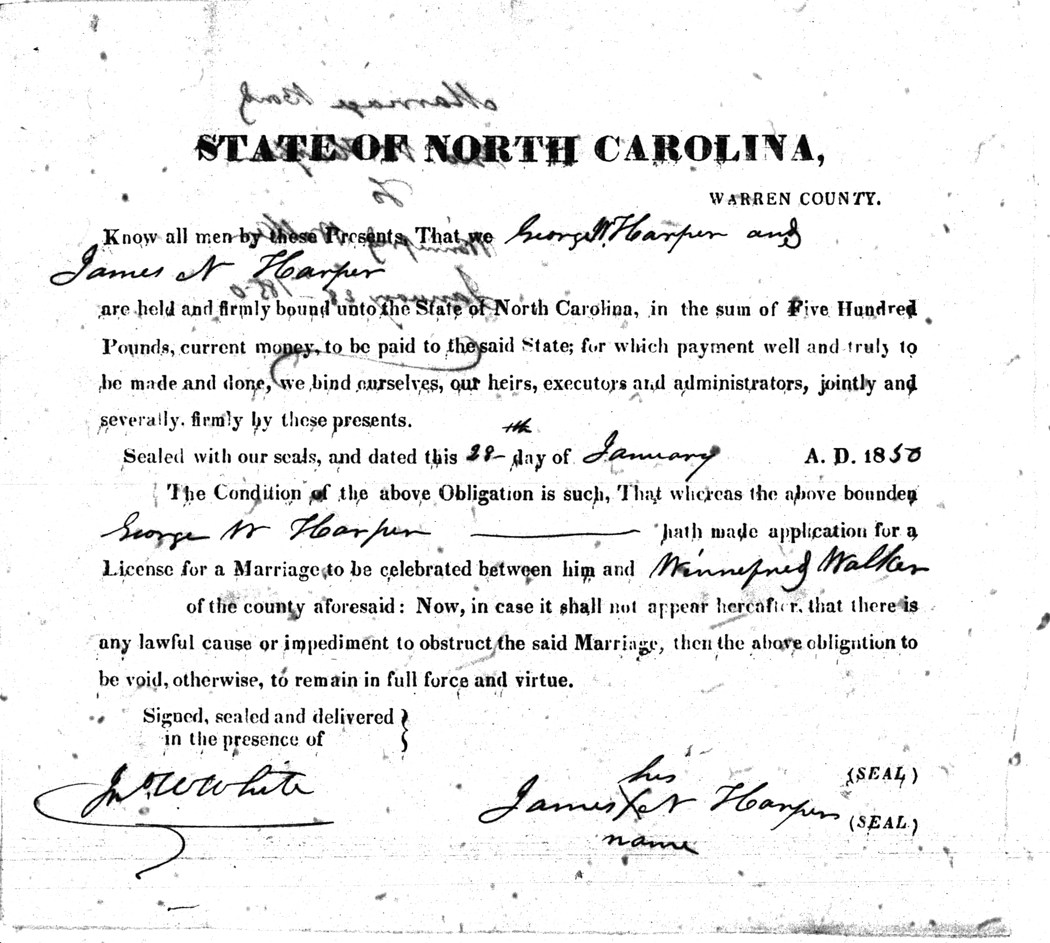 Marriage Bond
STATE OF NORTH CAROLINA,
To
WARREN COUNTY.
Know all men by these Presents, That we George W Harper and
James N Harper
January 28 - 1850
are held and firmly bound unto the State of North Carolina, in the sum of Five Hundred
Pounds, current money, to be paid to the said State; for which payment well and truly to
be made and done, we bind ourselves, our heirs, executors and administrators, jointly and
severally. firmly by these presents.
Sealed with our seals, and dated this 28th day of January A. D. 1850
The Condition of the above Obligation is such, That whereas the above bounden
George W Harper hath made application for a
License for a Marriage to be celebrated between him and Winnefred Walker
of the county aforesaid: Now, in case it shall not appear hereafter, that there is
any lawful cause or impediment to obstruct the said Marriage, then the above obligation to
be void, otherwise, to remain in full force and virtue.
Signed, sealed and delivered
in the presence of
his (SEAL)
Jno W White James X N Harper (SEAL)
name